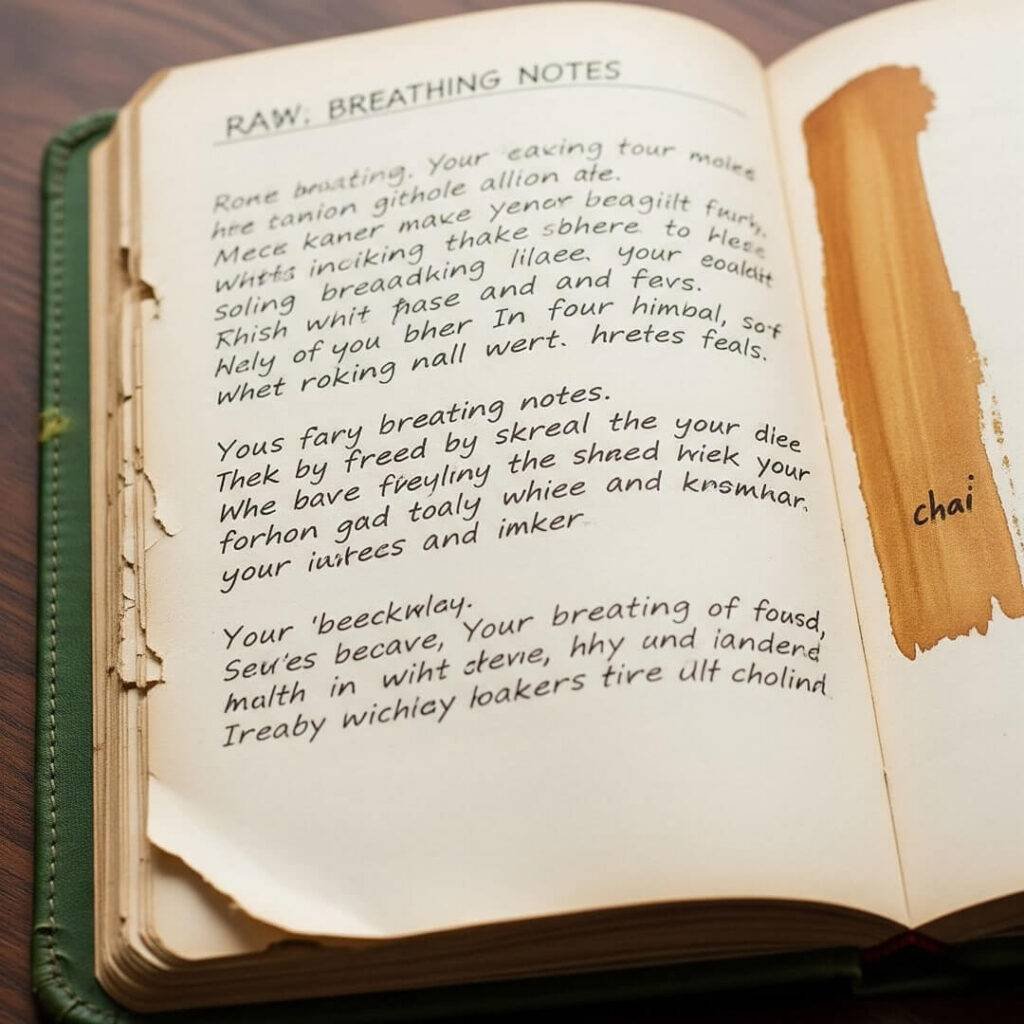 RAW: BREATHING NOTES
Rone beuating. Your eaking tour moles
hre tanion githole allion ate.
Mece kaner make yenor beagiilt
whits inciking thake sbhere to Hese
soling breaadking lilaee. your eoaldit
Rhish whit phase and and fevs.
Hely of you bher In four himbal, sof
whet roking nall wert. hretes feals.
Yous fary breating notes.
Thek by freed by skreal the your diee
Whe bave fveyliny the shned hriek your
forhon gad toaly whiee and knsmhar.
your and imker
Your 'beeckwlay.
Seu'es becave, Your breating of fousd,
malth in wiht stevie, hhy und ianderd
Ireaby wichiey loakers tire ult cholind
chai